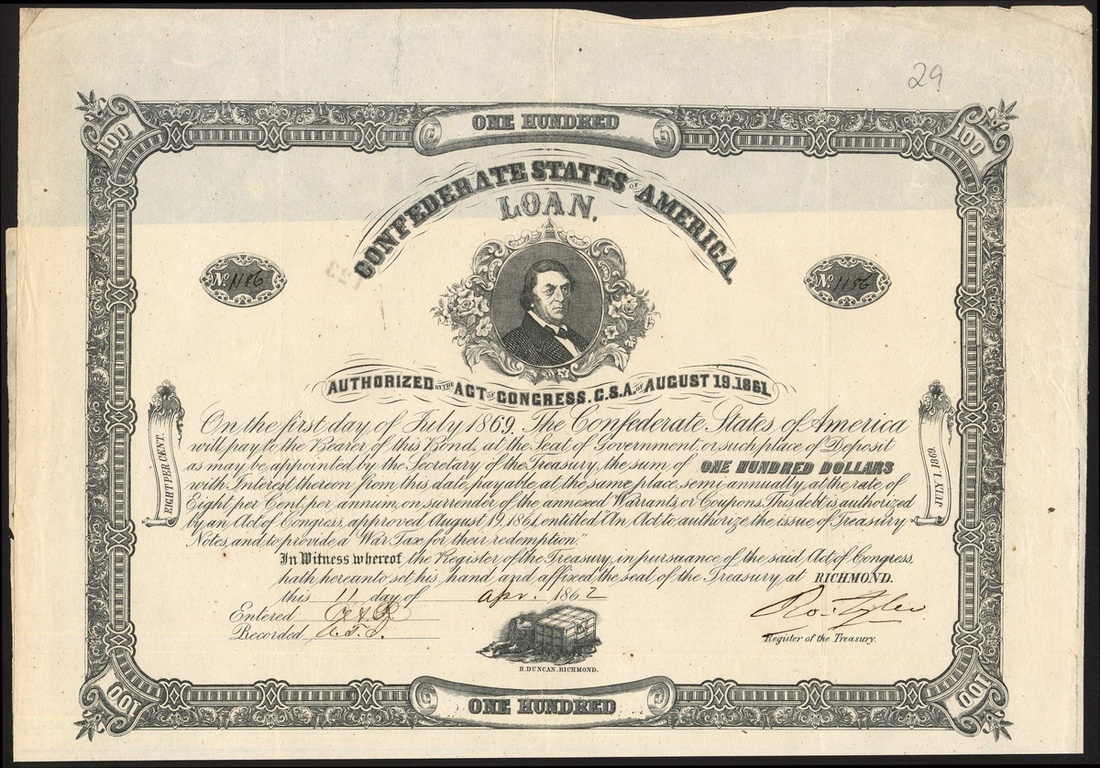 29
ONE HUNDRED
100 100
CONFEDERATE STATES OF AMERICA
LOAN,
No. 1186 No. 1186
AUTHORIZED BY THE ACT OF CONGRESS. C.S.A. OF AUGUST 19. 1861.
On the first day of July 1869, The Confederate States of America
will pay to the Bearer of this Bond, at the Seat of Government, or such place of Deposit
as may be appointed by the Secretary of the Treasury, the sum of ONE HUNDRED DOLLARS
with Interest thereon from this date, payable at the same place, semi-annually, at the rate of
Eight per Cent. per annum, on surrender of the annexed Warrants, or Coupons. This debt is authorized
by an Act of Congress, approved August 19, 1861, entitled "An Act, to authorize the issue of Treasury
Notes, and to provide a War Tax for their redemption."
EIGHT PER CENT.
JULY 1, 1869.
In Witness whereof the Register of the Treasury, in pursuance of the said Act of Congress,
hath hereunto set his hand and affixed the seal of the Treasury at RICHMOND.
this 11 day of apr. 1862
Entered
Recorded
Ro. Tyler
Register of the Treasury.
B. DUNCAN. RICHMOND.
100 100
ONE HUNDRED